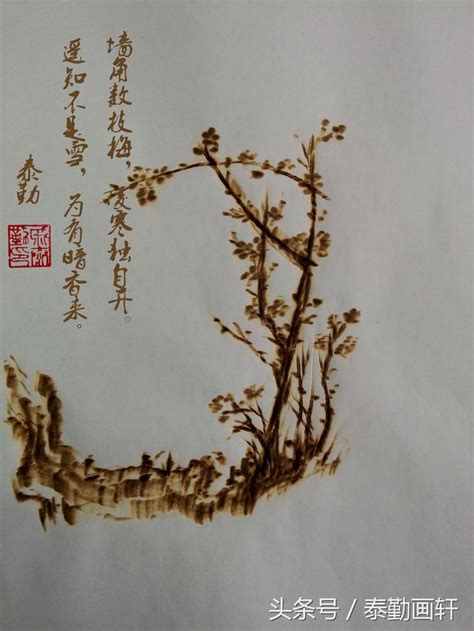 墙角数枝梅，凌寒独自开。
遥知不是雪，为有暗香来。
泰勤
头条号 / 泰勤画轩